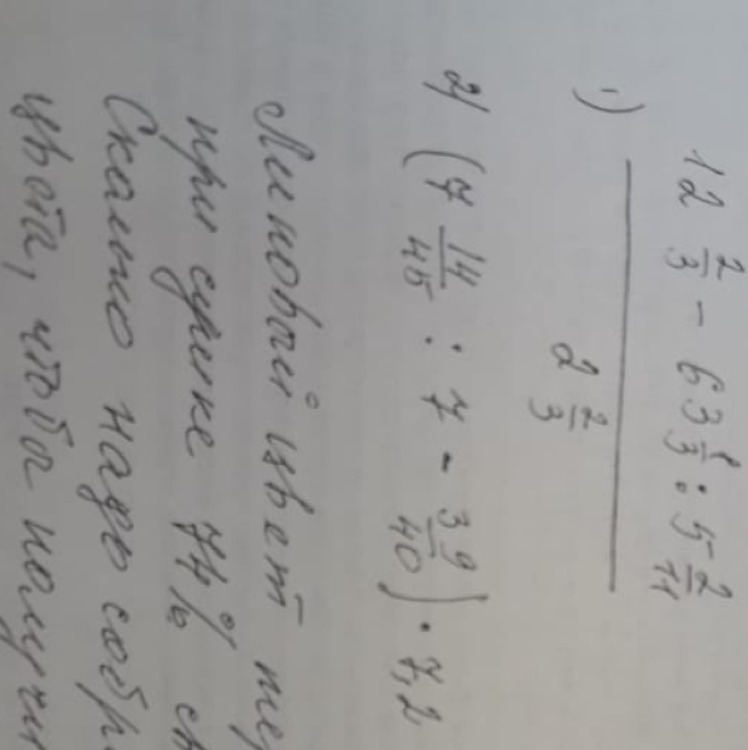 1) (12 2/3 - 63 1/3 : 5 2/11) / (2 2/3)
2) (7 14/45 : 7 - 39/40) · 7,2
Липовый цвет
при сушке 74%
Сколько надо
цвета, чтобы